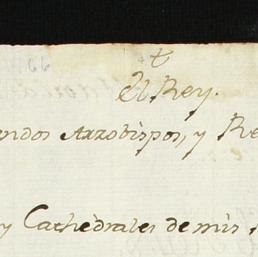 El Rey.
Arzobispos, y
y Cathedrales de mis